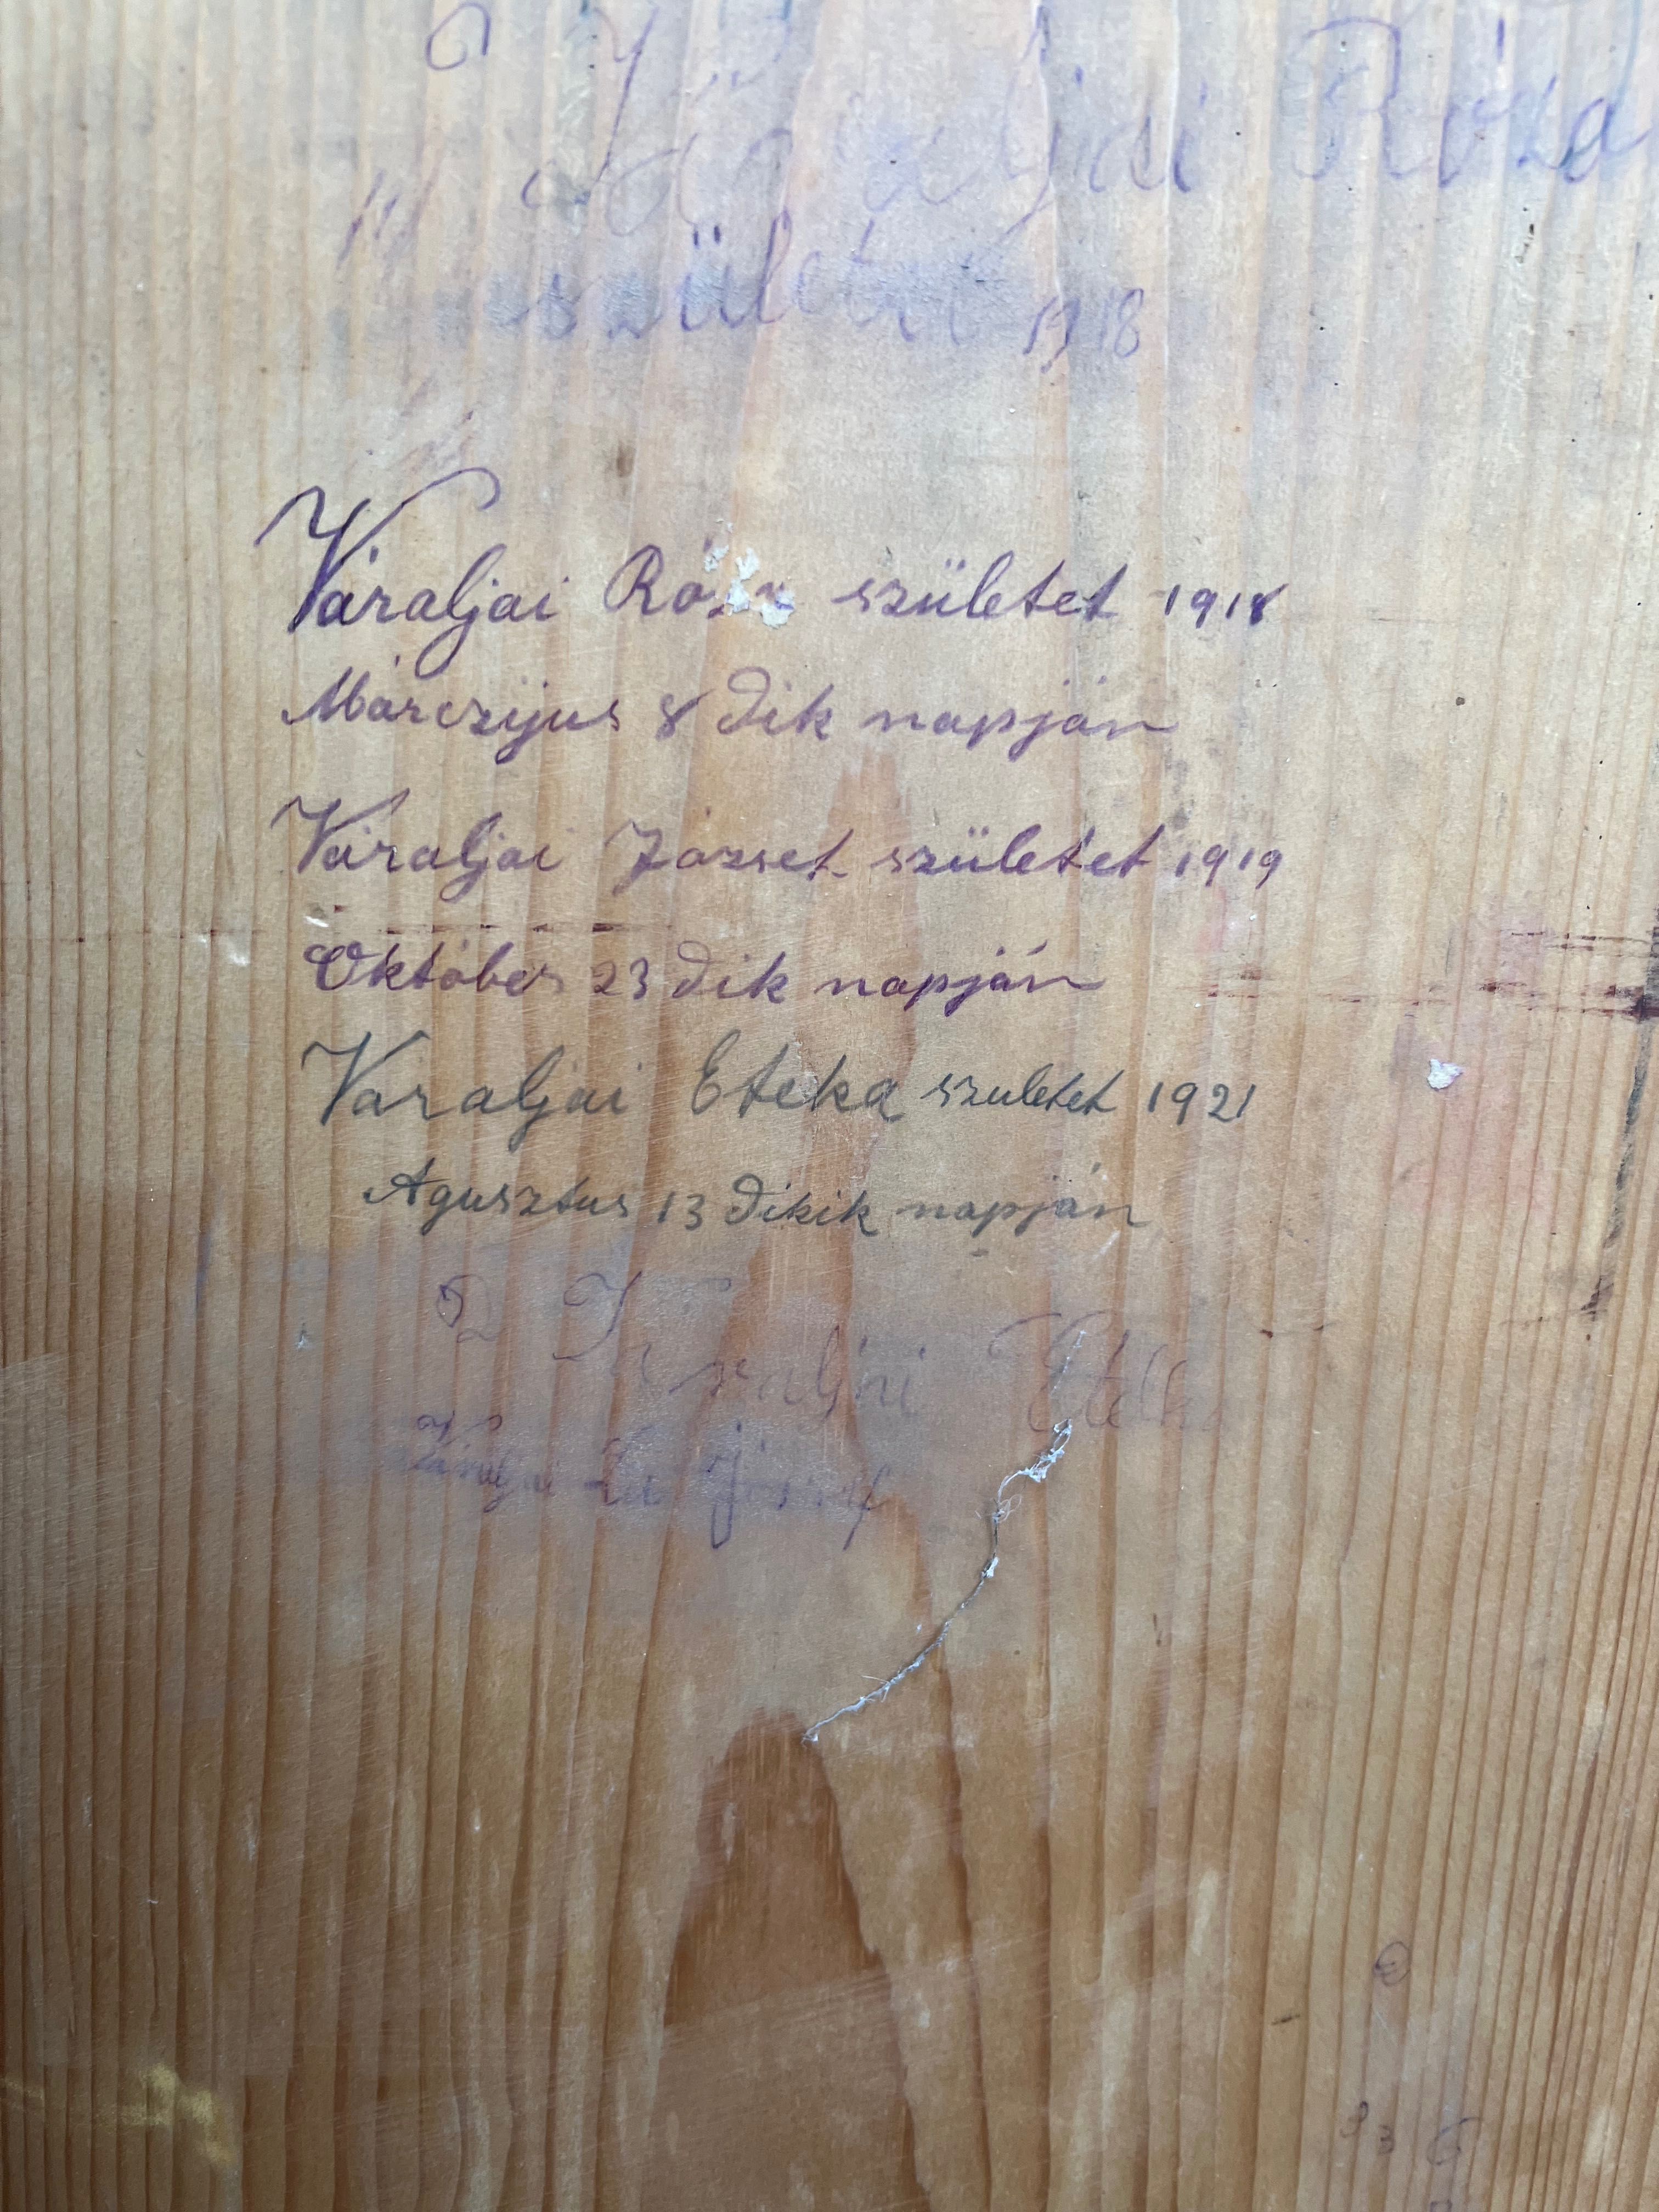 Váraljai Róza
született 1918
Váraljai Róza születet 1918
Márczijus 8 dik napján
Váraljai József születet 1919
Október 23 dik napján
Váraljai Eteka szuletet 1921
Agusztus 13 dikik napján
Váraljai Etelka